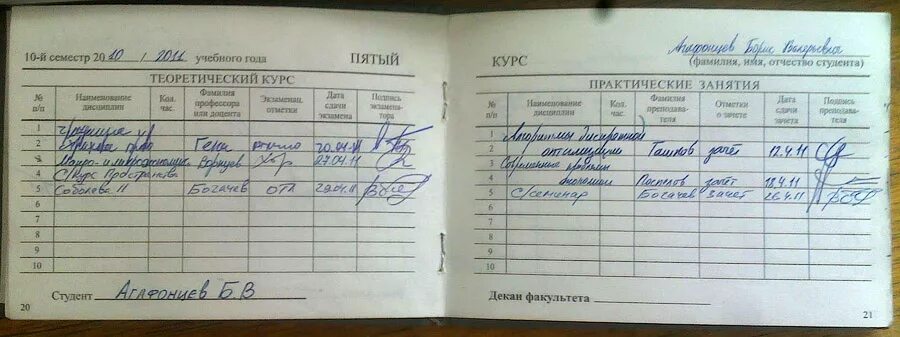 10-й семестр 2010 / 2011 учебного года ПЯТЫЙ
ТЕОРЕТИЧЕСКИЙ КУРС
№ п/п Наименование дисциплин Кол. час. Фамилия профессора или доцента Экзаменац. отметки Дата сдачи экзамена Подпись экзаменатора
1
2 право отлично 20.04.11
3 Макро- и микроэкономика Хор 27.04.11
4 С/Курс Пространства
5 Соболева II Богачев отл 29.04.11
6
7
8
9
10
Студент Агафонцев Б.В
20
Агафонцев Борис Валерьевич
КУРС (фамилия, имя, отчество студента)
ПРАКТИЧЕСКИЕ ЗАНЯТИЯ
№ п/п Наименование дисциплин Кол. час. Фамилия преподавателя Отметки о зачете Дата сдачи зачета Подпись преподавателя
1 Алгоритмы дискретной
2 оптимизации Ташков зачёт 12.4.11
3 Современные проблемы
4 экономики Поспелов зачёт 18.4.11
5 С/семинар Богачев зачёт 26.4.11
6
7
8
9
10
Декан факультета
21